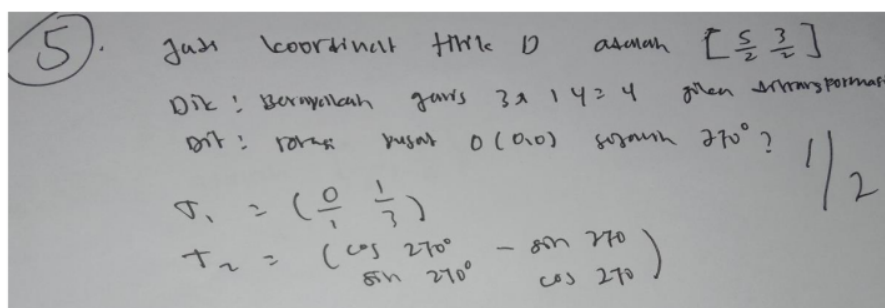 5). Jadi koordinat titik D adalah [5/2 3/2]
Dik : Berapakah garis 3x + y = 4 jika ditransformasi
Dit : rotasi pusat O (0,0) sejauh 270° ?
T₁ = (0/1 1/3)
T₂ = (cos 270° - sin 270
sin 270° cos 270)
1/2